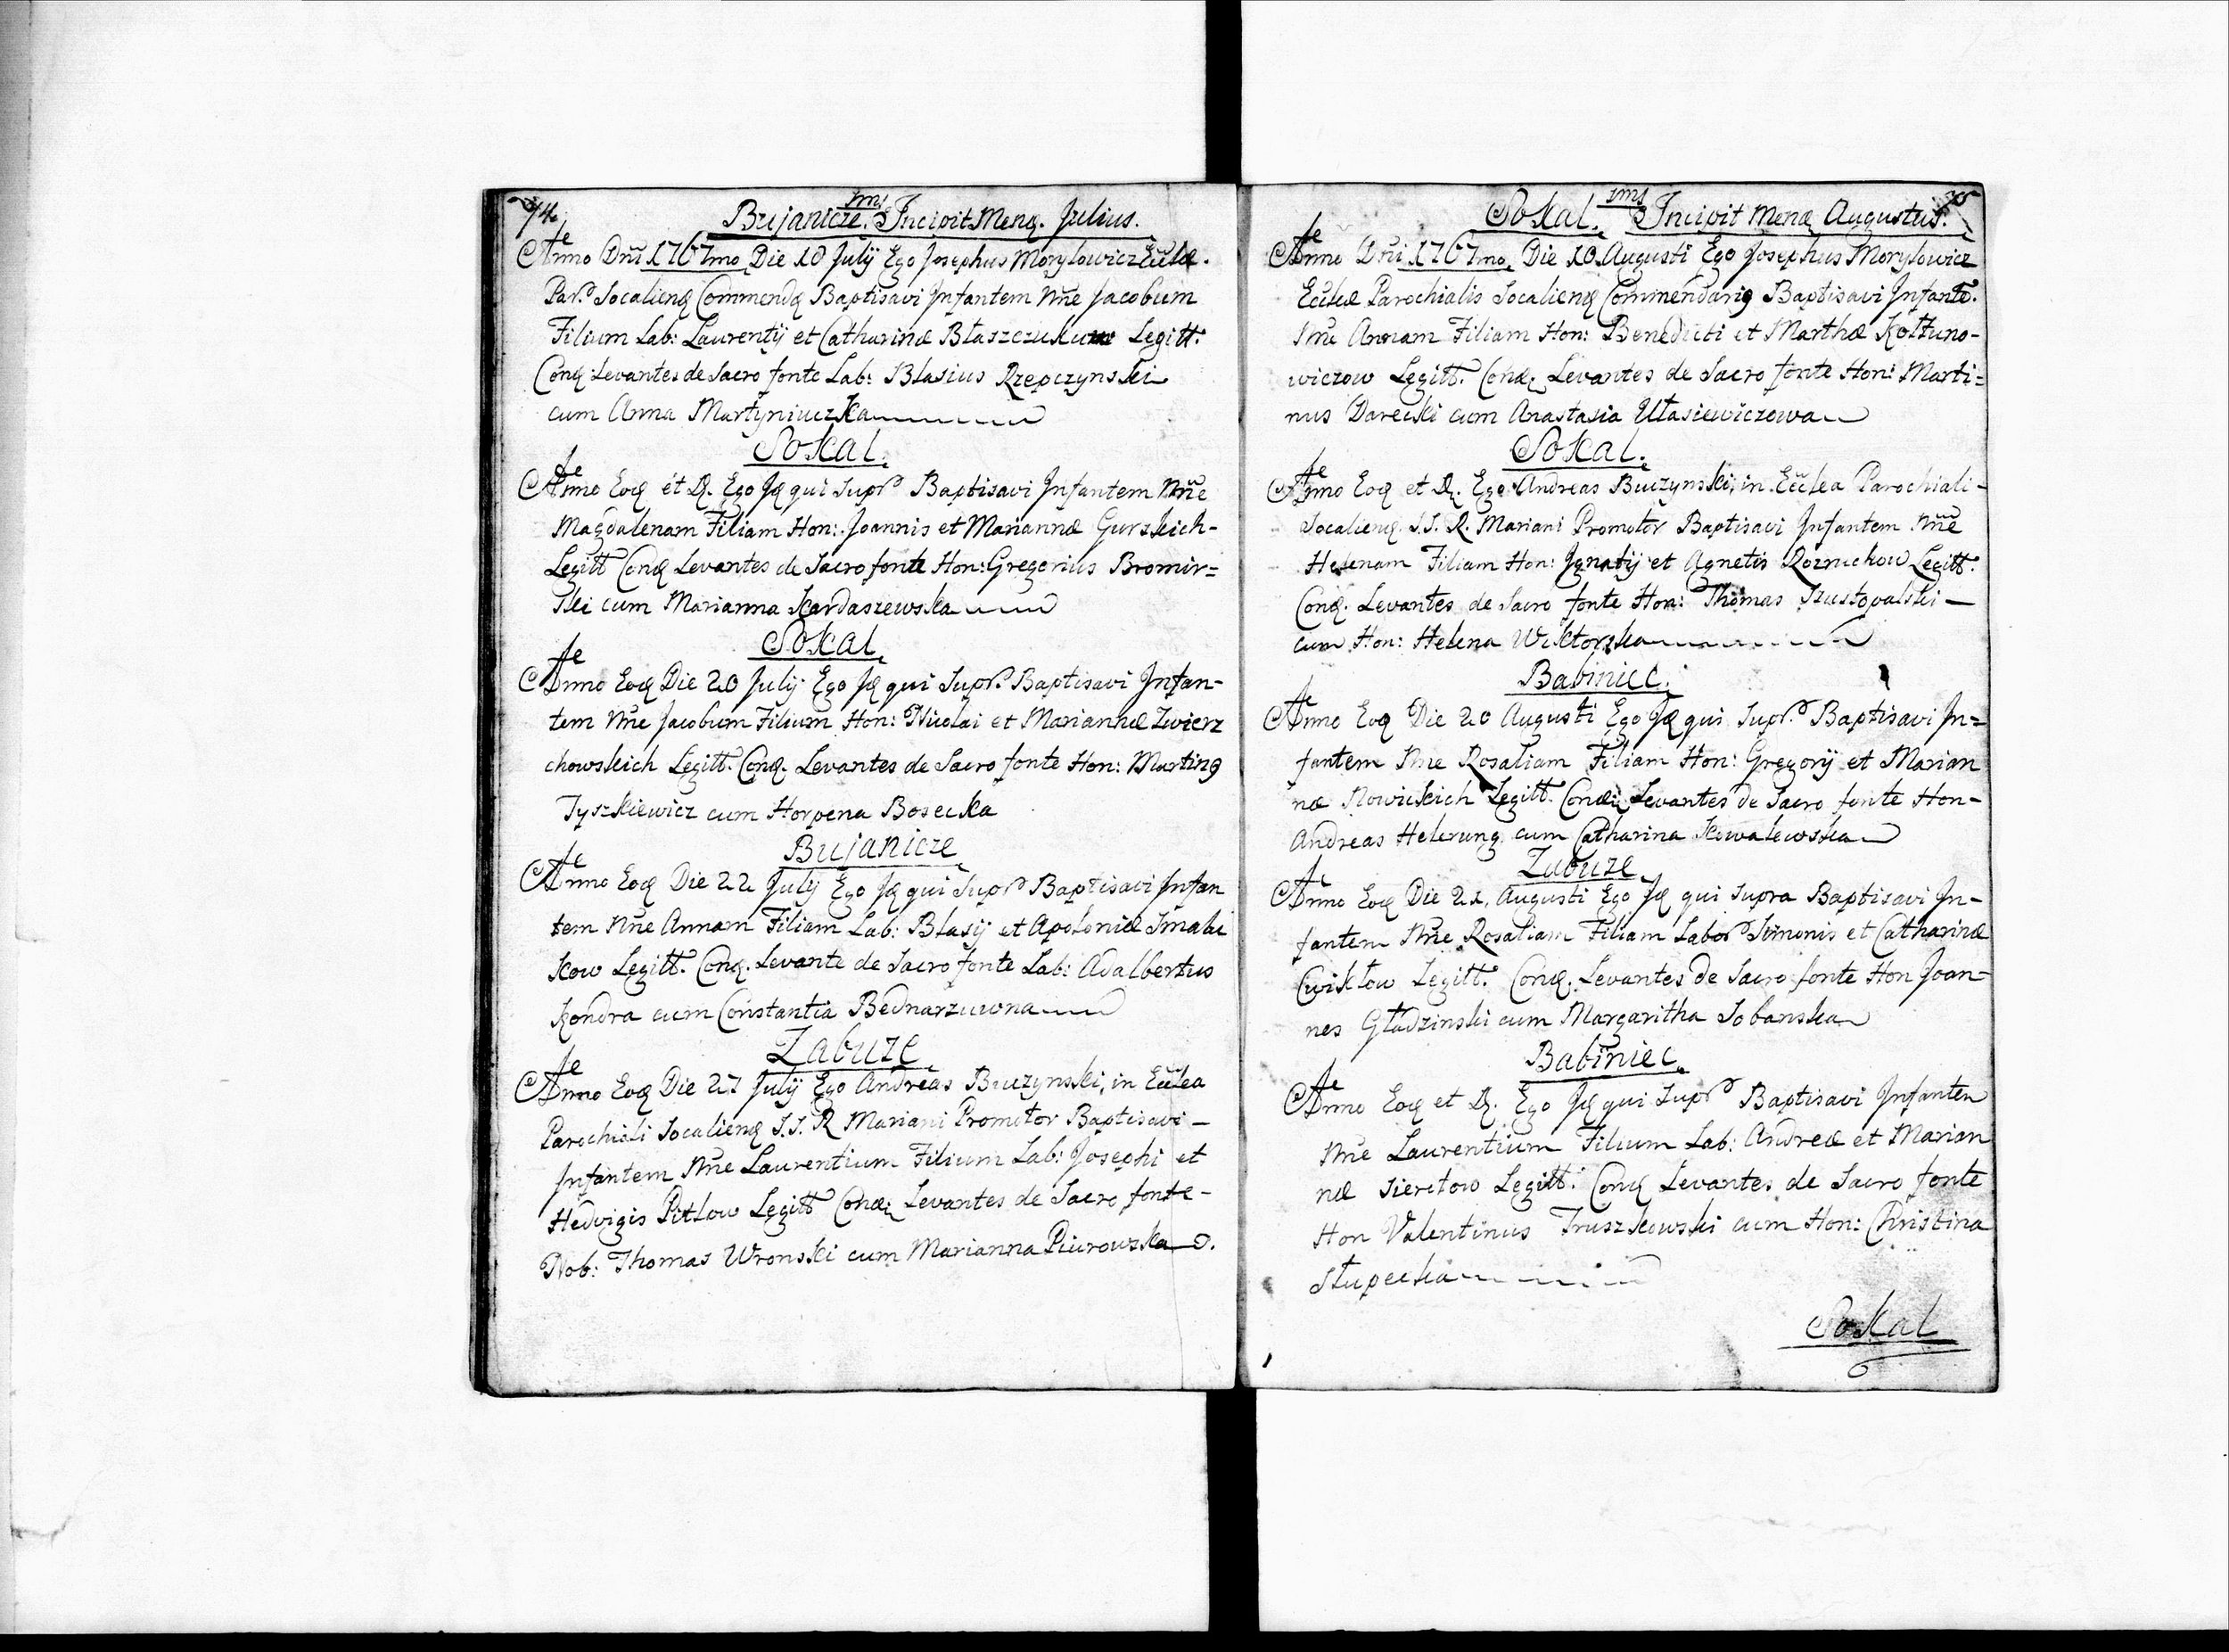 74.
Bujanicze. 1ms Incipit Mensꝫ. Julius.
Anno Dñi 1767mo Die 10 July Ego Josephus Morylowicz Eccłæ.
Par. Socaliensꝫ Commendꝫ Baptisavi Infantem Nñe Jacobum
Filium Lab: Laurentÿ et Catharinæ Błaszczukow Legitt.
Conꝫ Levantes de Sacro fonte Lab: Blasius Rzepczynski
cum Anna Martyniuczka
Sokal.
Anno Eoꝫ et D. Ego Iꝫ qui Supr Baptisavi Infantem Nñe
Magdalenam Filiam Hon: Joannis et Mariannæ Gurskich-
Legitt Conꝫ Levantes de Sacro fonte Hon: Gregorius Bromir=
ski cum Marianna Kardaszewska
Sokal.
Anno Eoꝫ Die 20 July Ego Iꝫ qui Supr. Baptisavi Infan-
tem Nñe Jacobum Filium Hon: Nicolai et Mariannæ Zwierz
chowskich Legitt. Conꝫ. Levantes de Sacro fonte Hon: Martinꝫ
Tyszkiewicz cum Horpena Bosecka
Bujanicze
Anno Eoꝫ Die 22 July Ego Iꝫ qui Supr Baptisavi Infan
tem Nñe Annam Filiam Lab: Blasÿ et Apoloniæ Smalu
kow Legitt. Conꝫ. Levante de Sacro fonte Lab: Adalbertus
Kondra cum Constantia Bednarzuwna
Zabuze
Anno Eoꝫ Die 27 July Ego Andreas Buczynski, in Eccłea
Parochiali Socaliensꝫ S.S. R Mariani Promotor Baptisavi-
Infantem Nñe Laurentium Filium Lab: Josephi et
Hedvigis Pitlow Legitt Conꝫ Levantes de Sacro fonte-
Nob: Thomas Wronski cum Marianna Piurowska
75
Sokal. 1ms Incipit Mensꝫ Augustus.
Anno Dñi 1767mo. Die 10 Augusti Ego Josephus Morylowicz
Eccłæ Parochialis Socaliensꝫ Commendariꝫ Baptisavi Infante.
Nñe Annam Filiam Hon: Benedicti et Marthæ Kołtuno-
wiczow Legitt. Conꝫ Levantes de Sacro fonte Hon: Marti=
nus Darecki cum Anastasia Ułasiewiczowa
Sokal.
Anno Eoꝫ et D. Ego Andreas Buczynski, in Eccłea Parochiali-
Socaliensꝫ. S.S. R. Mariani Promotor Baptisavi Infantem Nñe
Helenam Filiam Hon: Ignatÿ et Agnetis Roznuchow Legitt.
Conꝫ. Levantes de Sacro fonte Hon: Thomas Szustopalski
cum Hon: Helena Wiktorska
Babiniec.
Anno Eoꝫ Die 20 Augusti Ego Iꝫ qui Supr. Baptisavi In=
fantem Nñe Rosaliam Filiam Hon: Gregorÿ et Marian
næ Nowickich Legitt. Conꝫ Levantes de Sacro fonte Hon-
Andreas Helerung cum Catharina Kowalewska
Zabuze
Anno Eoꝫ Die 21, Augusti Ego Iꝫ qui Supra Baptisavi In-
fantem Nñe Rosaliam Filiam Labor Simonis et Catharinæ
Cwikłow Legitt. Conꝫ. Levantes de Sacro fonte Hon Joan-
nes Gładzinski cum Margaritha Sobanska
Babiniec
Anno Eoꝫ et D. Ego Iꝫ qui Supr Baptisavi Infanten
Nñe Laurentium Filium Lab: Andreæ et Marian
næ Sieretow Legitt: Conꝫ Levantes de Sacro fonte
Hon Valentinus Truszkowski cum Hon: Christina
Słupecka
Sokal